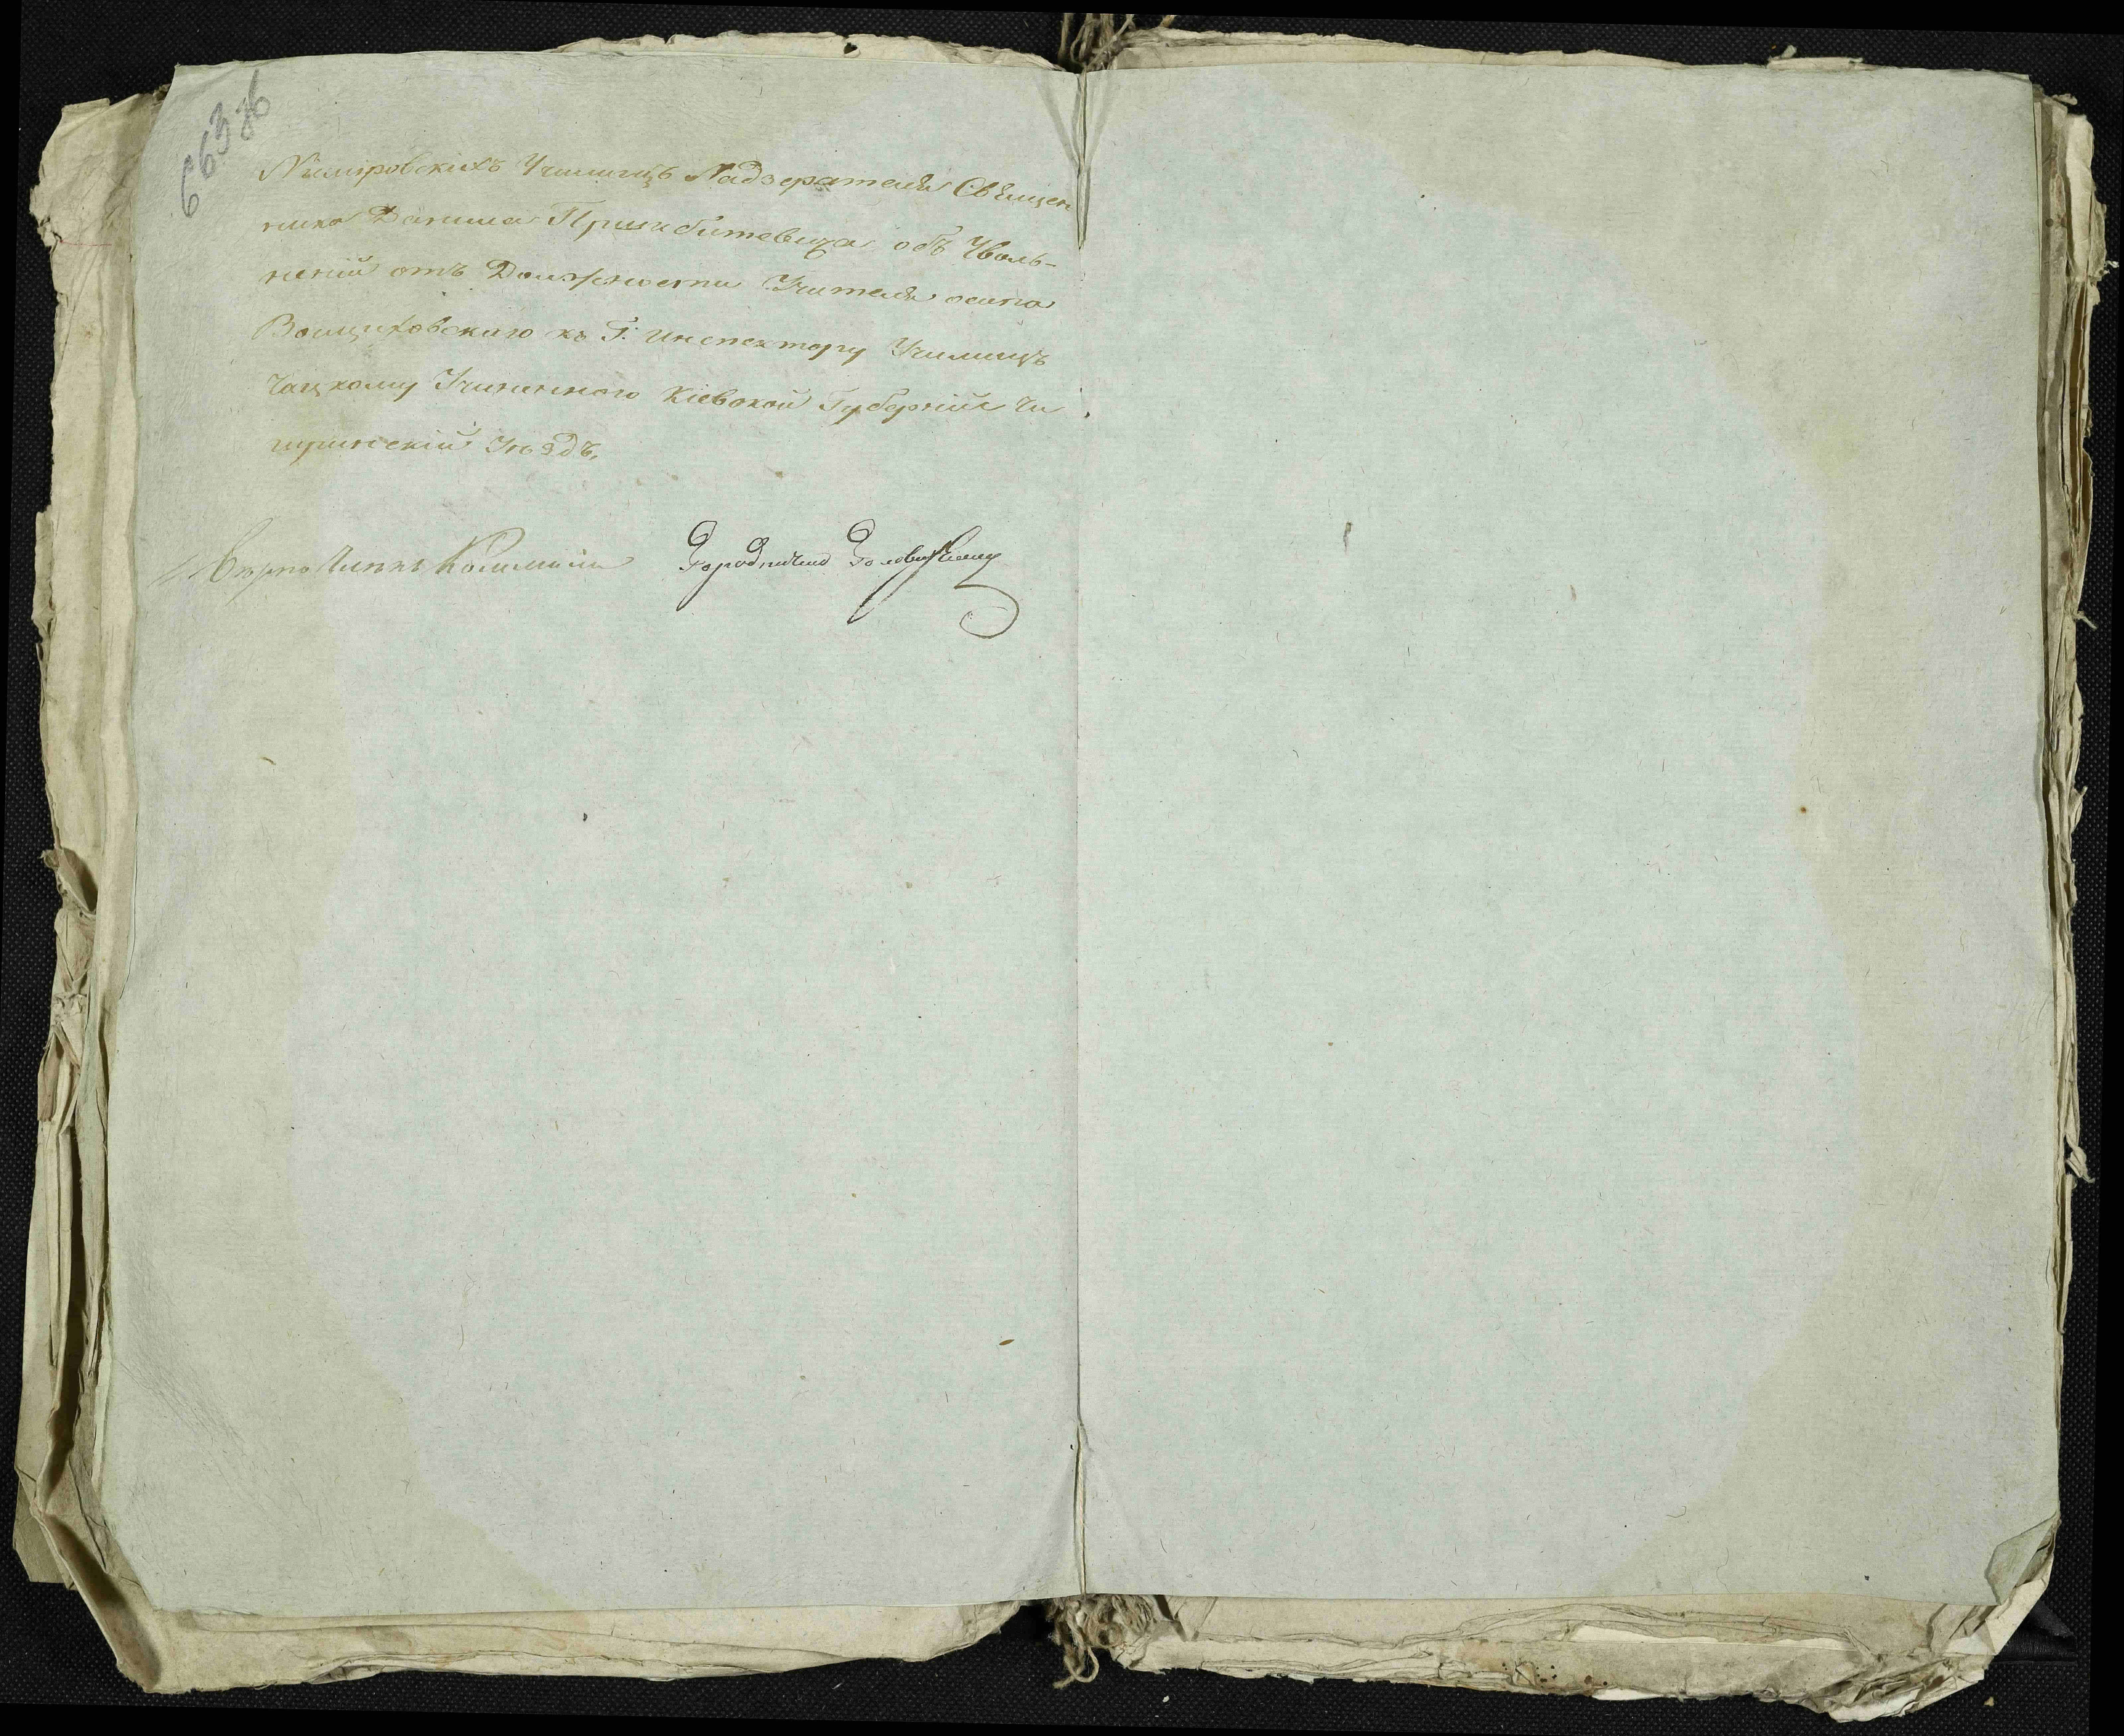 663 зв
Нѣмировскихъ Училищъ Надзерателя Священ
ника Данила Пршибитевича объ Уволь-
неніи отъ Должности Учителя осипа
Воицеховскаго къ Г: инспектору Училищъ
Чацкому Учиненного Кіевской Губерніи Чи
гиринскій Уѣздъ,
Вѣрно Членъ Коммисіи Городничий